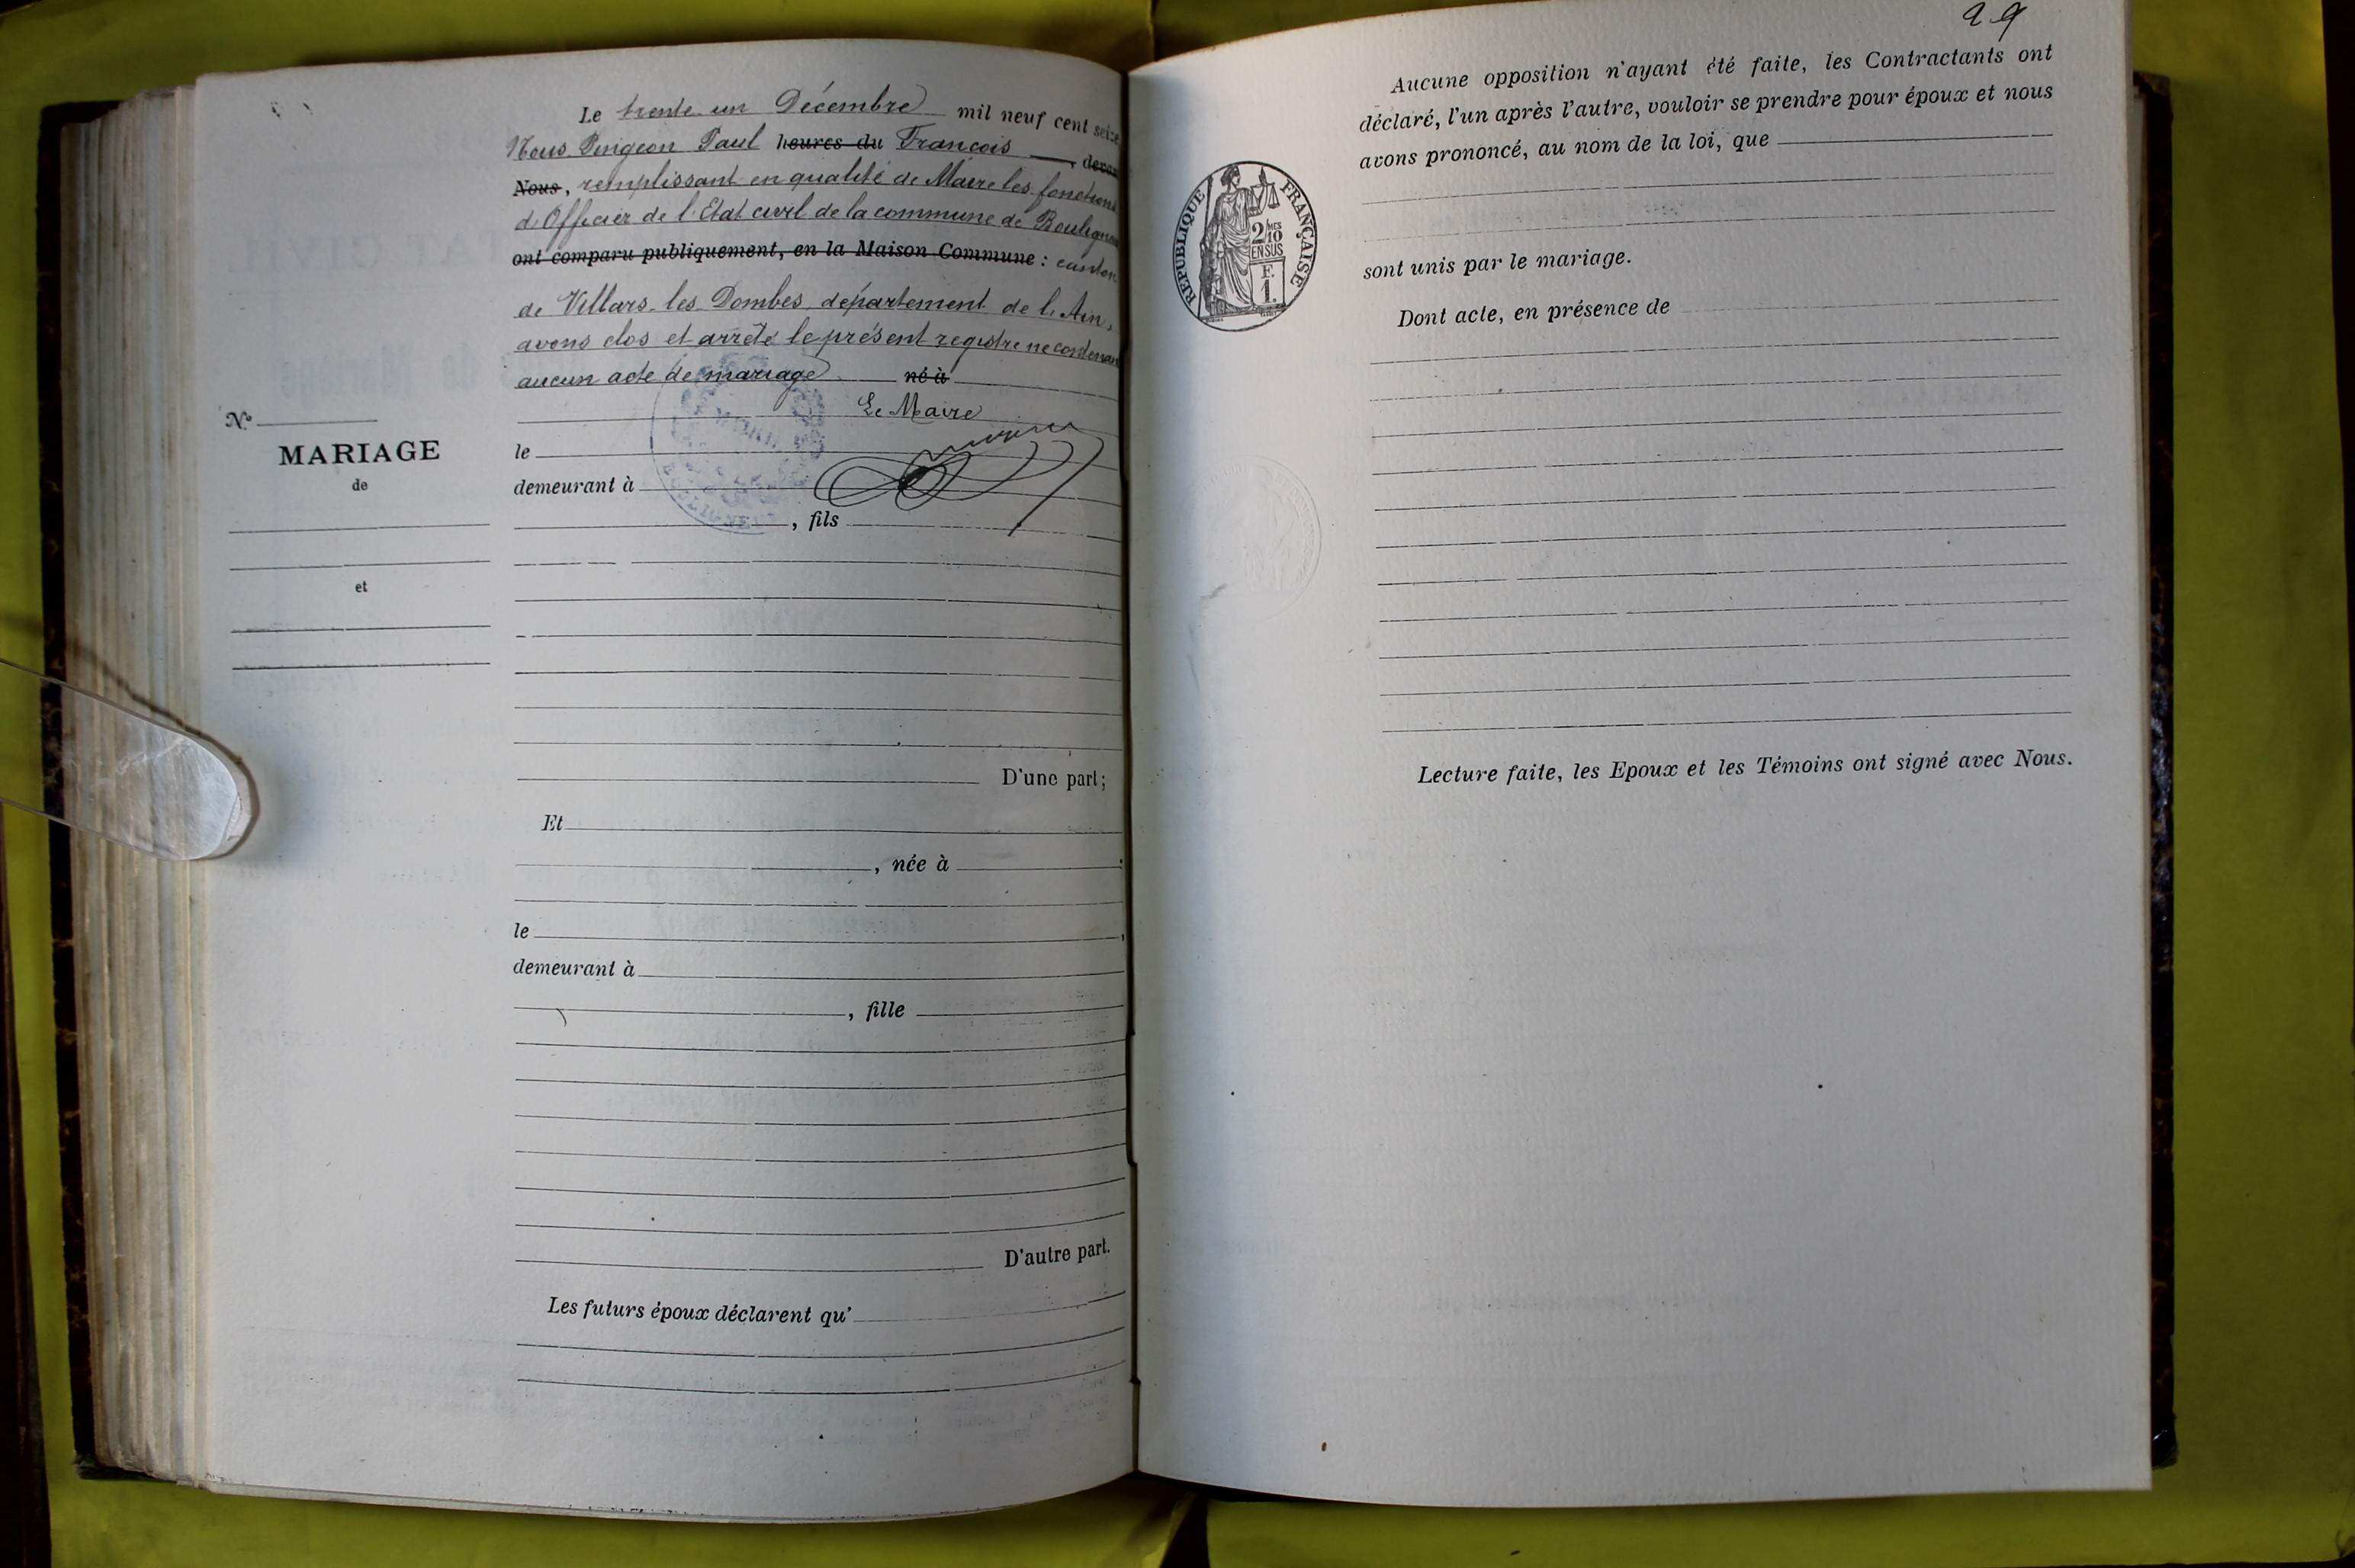 Le trente un Décembre mil neuf cent seize
Nous Pingeon Paul heures du François, devan
Nous, remplissant en qualité de Maire les fonctions
d'Officier de l'Etat civil de la commune de Bouligneux
ont comparu publiquement, en la Maison Commune : canton
de Villars-les-Dombes département de l'Ain,
avons clos et arrêté le présent registre ne contenant
aucun acte de mariage né à
Le Maire
le
demeurant à
, fils
D'une part;
Et
, née à
le
demeurant à
, fille
D'autre part.
Les futurs époux déclarent qu'
N°
MARIAGE
de
et
29
Aucune opposition n'ayant été faite, les Contractants ont
déclaré, l'un après l'autre, vouloir se prendre pour époux et nous
avons prononcé, au nom de la loi, que
sont unis par le mariage.
Dont acte, en présence de
Lecture faite, les Epoux et les Témoins ont signé avec Nous.
RÉPUBLIQUE FRANÇAISE
2 MES
10
EN SUS
F.
1.